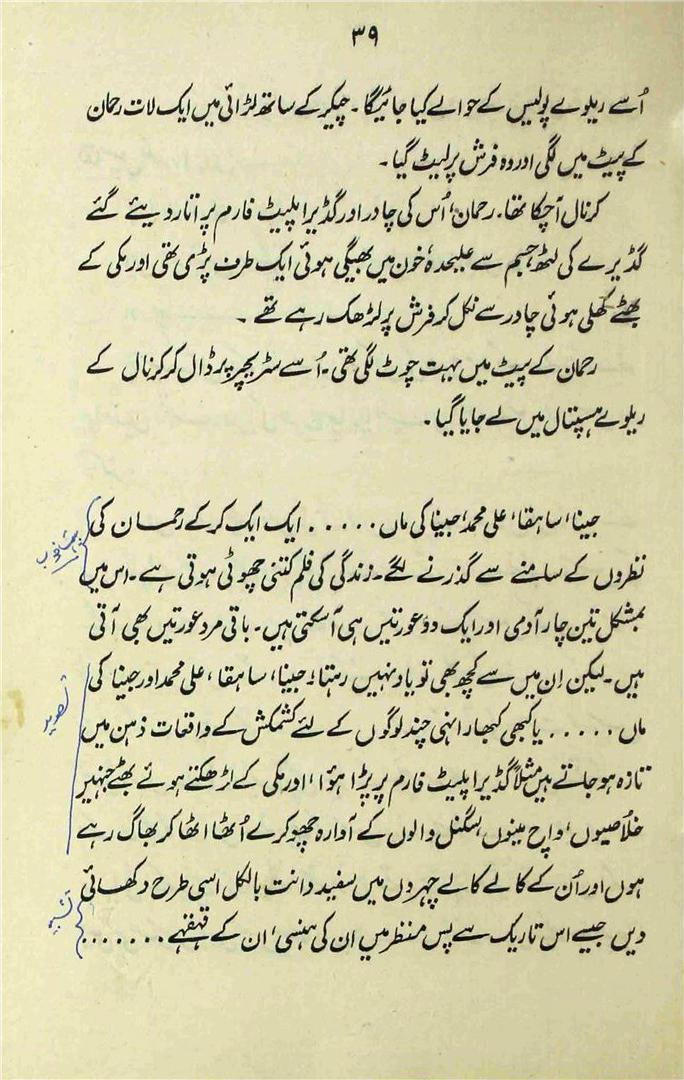 ۳۹
اُسے ریلوے پولیس کے حوالے کیا جائیگا۔ چیکر کے ساتھ لڑائی میں ایک لات رحمان
کے پیٹ میں لگی اور وہ فرش پر لیٹ گیا۔
کرنال آ چکا تھا۔ رحمان، اُس کی چادر اور گڈیرا پلیٹ فارم پر اتار دیئے گئے
گڈیرے کی لٹھ جسم سے علیحدہ خون میں بھیگی ہوئی ایک طرف پڑی تھی اور مکی کے
بھٹے کھلی ہوئی چادر سے نکل کر فرش پر لڑھک رہے تھے۔
رحمان کے پیٹ میں بہت چوٹ لگی تھی۔ اُسے سٹریچر پر ڈال کر کرنال کے
ریلوے ہسپتال میں لے جایا گیا۔
جینا، ساہقا، علی محمد، جینا کی ماں ..... ایک ایک کر کے رحمان کی
نظروں کے سامنے سے گذرنے لگے۔ زندگی کی فلم کتنی چھوٹی ہوتی ہے۔ اس میں
بمشکل تین چار آدمی اور ایک دو عورتیں ہی آ سکتی ہیں۔ باقی مرد عورتیں بھی آتی
ہیں۔ لیکن اِن میں سے کچھ بھی تو یاد نہیں رہتا۔ جینا، ساہقا، علی محمد اور جینا کی
ماں ..... یا کبھی کبھار انہی چند لوگوں کے لئے کشمکش کے واقعات ذہن میں
تازہ ہو جاتے ہیں مثلاً گڈیرا پلیٹ فارم پر پڑا ہؤا، اور مکی کے لڑھکتے ہوئے بھٹے جنہیں
خلاصیوں، واچ مینوں، سگنل والوں کے آوارہ چھوکرے اُٹھا اٹھا کر بھاگ رہے
ہوں اور اُن کے کالے کالے چہروں میں سفید دانت بالکل اسی طرح دکھائی
دیں جیسے اس تاریک سے پس منظر میں ان کی ہنسی، ان کے قہقہے .......
تصویر